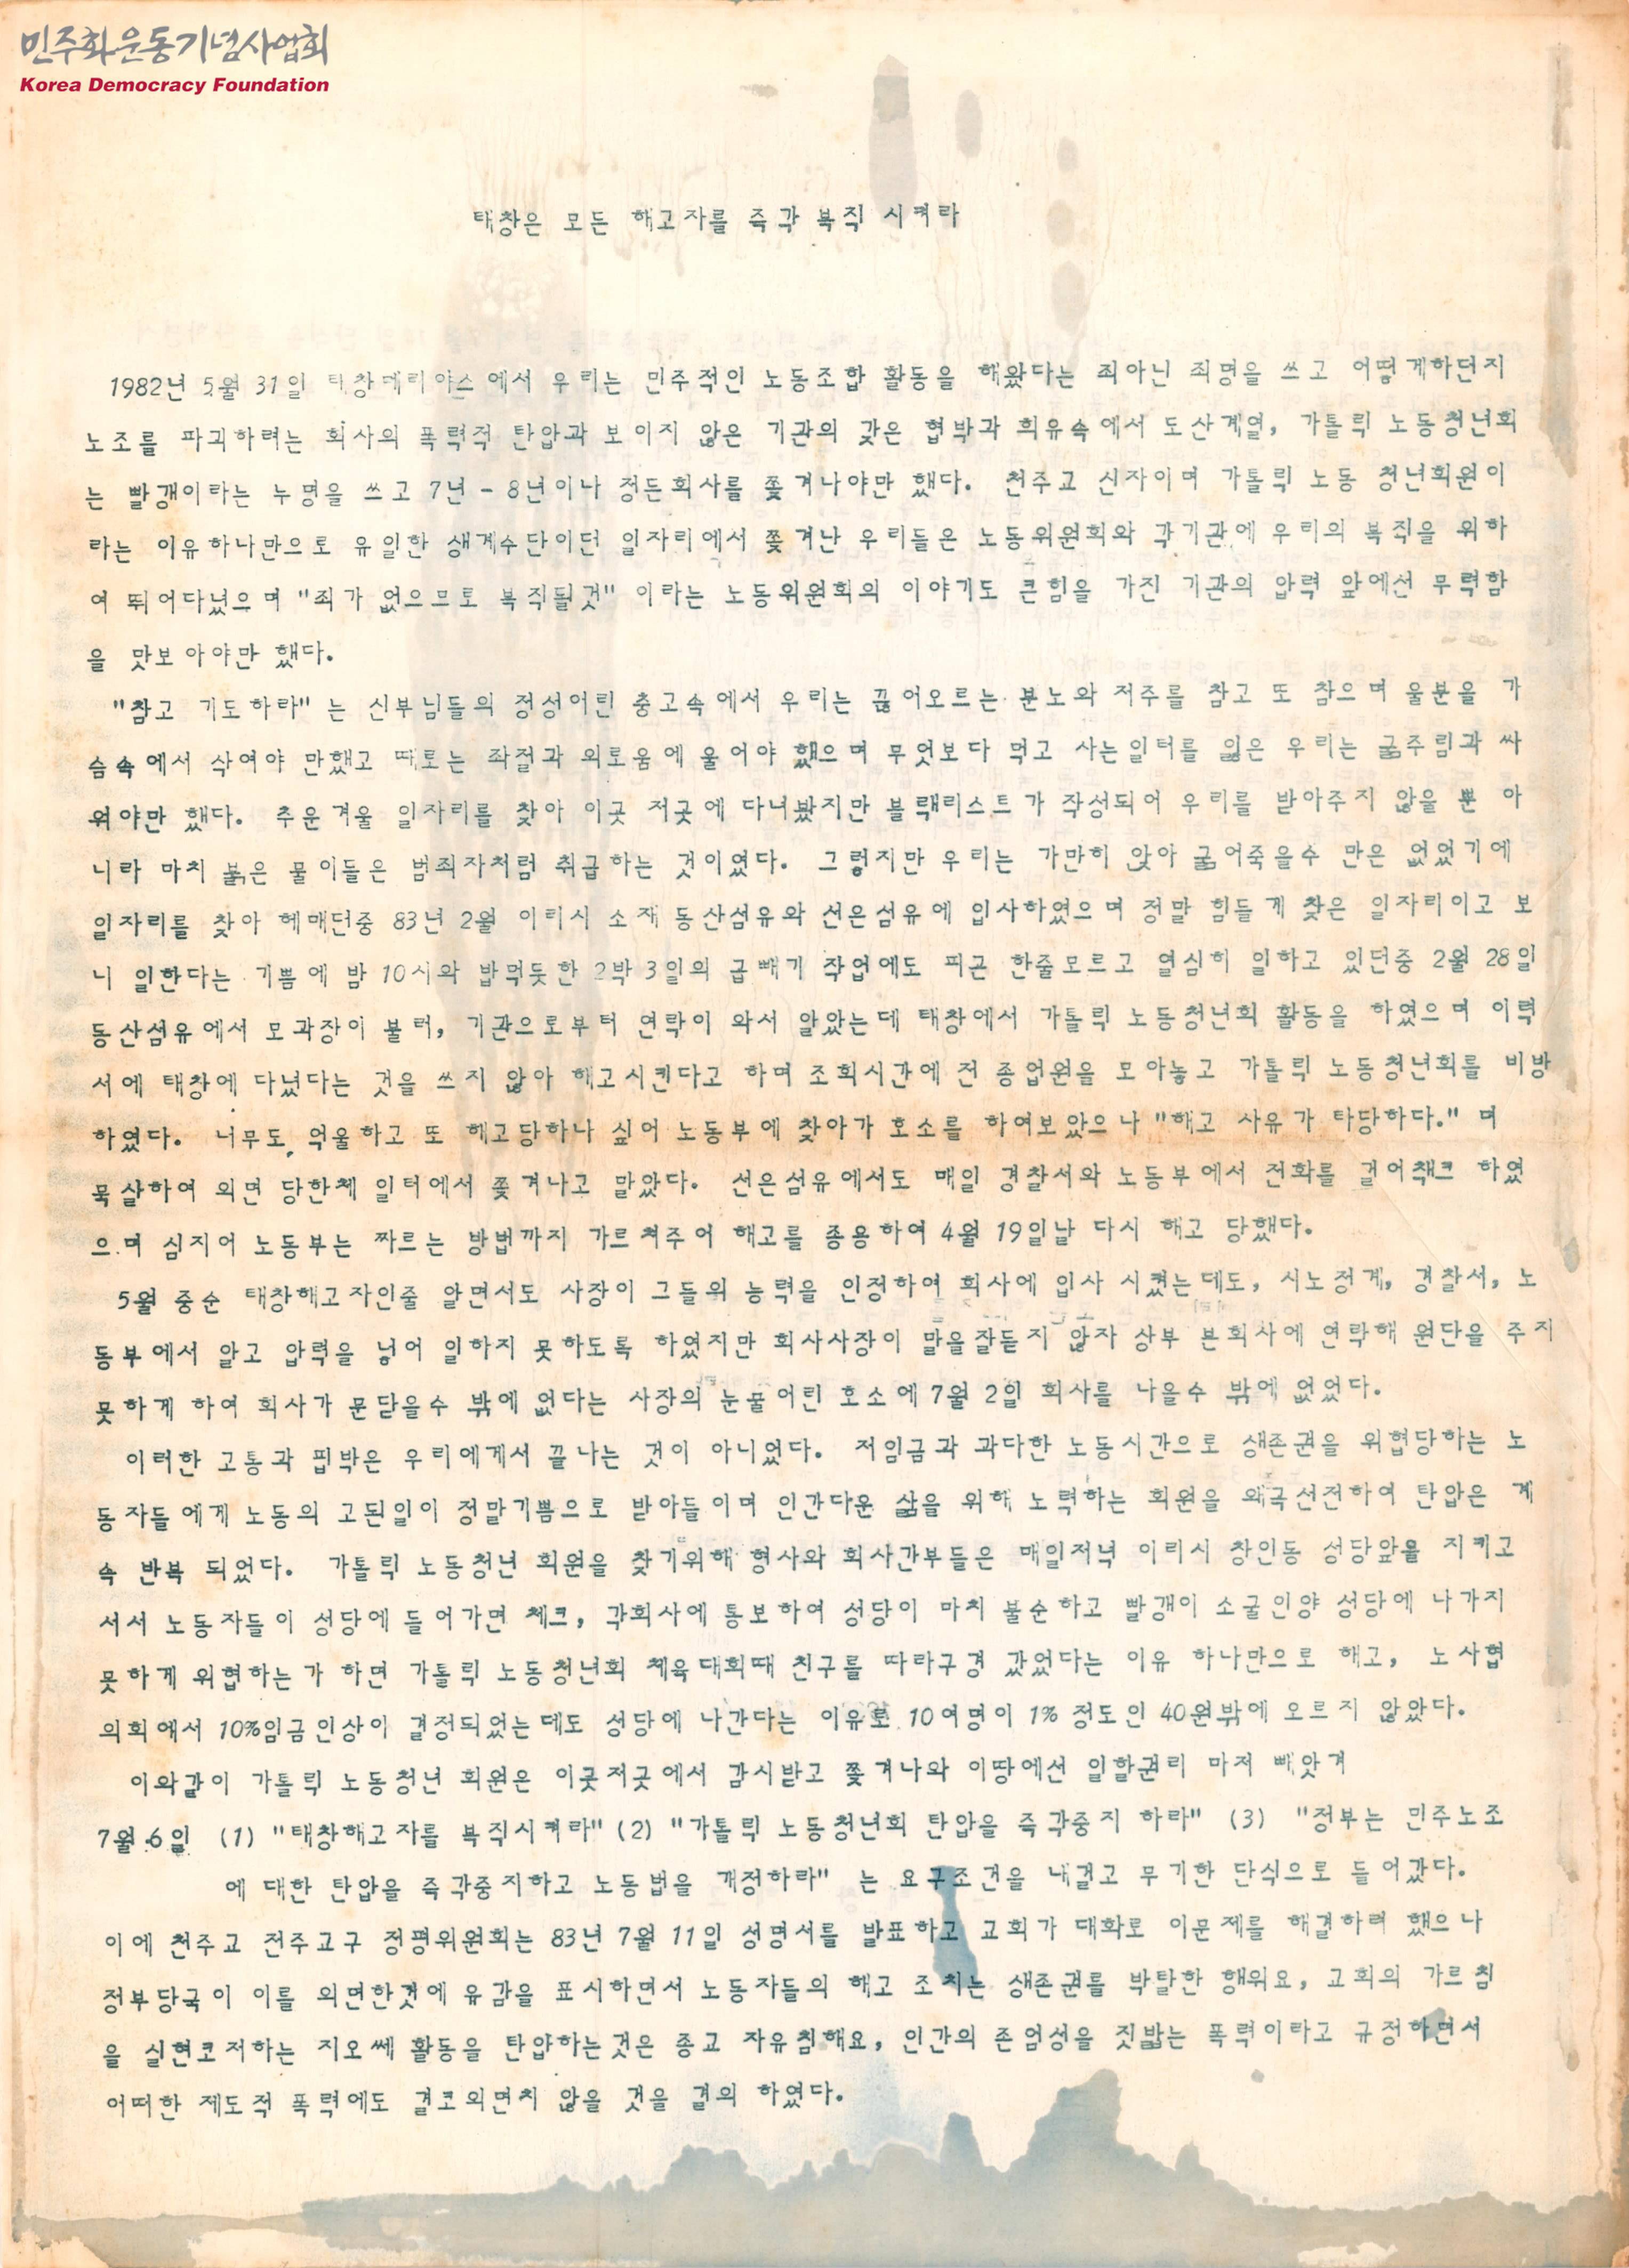 민주화운동기념사업회
Korea Democracy Foundation
태창은 모든 해고자를 즉각 복직 시켜라
1982년 5월 31일 태창메리야스 에서 우리는 민주적인 노동조합 활동을 해왔다는 죄아닌 죄명을 쓰고 어떻게하던지
노조를 파괴하려는 회사의 폭력적 탄압과 보이지 않은 기관의 갖은 협박과 회유속에서 도산계열, 가톨릭 노동청년회
는 빨갱이라는 누명을 쓰고 7년 - 8년이나 정든회사를 쫓겨나야만 했다. 천주교 신자이며 가톨릭 노동 청년회원이
라는 이유하나만으로 유일한 생계수단이던 일자리에서 쫓겨난 우리들은 노동위원회와 각기관에 우리의 복직을 위하
여 뛰어다녔으며 "죄가 없으므로 복직될것" 이라는 노동위원회의 이야기도 큰힘을 가진 기관의 압력 앞에선 무력함
을 맛보아야만 했다.
"참고 기도하라" 는 신부님들의 정성어린 충고속에서 우리는 끓어오르는 분노와 저주를 참고 또 참으며 울분을 가
슴속에서 삭여야 만했고 때로는 좌절과 외로움에 울어야 했으며 무엇보다 먹고 사는일터를 잃은 우리는 굶주림과 싸
워야만 했다. 추운겨울 일자리를 찾아 이곳 저곳에 다녀봤지만 블랙리스트가 작성되어 우리를 받아주지 않을 뿐 아
니라 마치 붉은 물이들은 범죄자처럼 취급하는 것이였다. 그렇지만 우리는 가만히 앉아 굶어죽을수 만은 없었기에
일자리를 찾아 헤매던중 83년 2월 이리시 소재 동산섬유와 선은섬유에 입사하였으며 정말 힘들게 찾은 일자리이고 보
니 일한다는 기쁨에 밤 10시와 밥먹듯한 2박 3일의 급빼기 작업에도 피곤 한줄모르고 열심히 일하고 있던중 2월 28일
동산섬유에서 모과장이 불러, 기관으로부터 연락이 와서 알았는데 태창에서 가톨릭 노동청년회 활동을 하였으며 이력
서에 태창에 다녔다는 것을 쓰지 않아 해고시킨다고 하며 조회시간에 전 종업원을 모아놓고 가톨릭 노동청년회를 비방
하였다. 너무도 억울하고 또 해고당하나 싶어 노동부에 찾아가 호소를 하여보았으나 "해고 사유가 타당하다." 며
묵살하여 외면 당한체 일터에서 쫓겨나고 말았다. 선은섬유에서도 매일 경찰서와 노동부에서 전화를 걸어책크 하였
으며 심지어 노동부는 짜르는 방법까지 가르쳐주어 해고를 종용하여 4월 19일날 다시 해고 당했다.
5월 중순 태창해고자인줄 알면서도 사장이 그들의 능력을 인정하여 회사에 입사 시켰는데도, 시노정계, 경찰서, 노
동부에서 알고 압력을 넣어 일하지 못하도록 하였지만 회사사장이 말을잘듣지 않자 상부 본회사에 연락해 원단을 주지
못하게 하여 회사가 문닫을수 밖에 없다는 사장의 눈물어린 호소에 7월 2일 회사를 나올수 밖에 없었다.
이러한 고통과 핍박은 우리에게서 끝나는 것이 아니었다. 저임금과 과다한 노동시간으로 생존권을 위협당하는 노
동자들에게 노동의 고된일이 정말기쁨으로 받아들이며 인간다운 삶을 위해 노력하는 회원을 왜곡선전하여 탄압은 계
속 반복 되었다. 가톨릭 노동청년 회원을 찾기위해 형사와 회사간부들은 매일저녁 이리시 창인동 성당앞을 지키고
서서 노동자들이 성당에 들어가면 체크, 각회사에 통보하여 성당이 마치 불순하고 빨갱이 소굴인양 성당에 나가지
못하게 위협하는가 하면 가톨릭 노동청년회 체육대회때 친구를 따라구경 갔었다는 이유 하나만으로 해고, 노사협
의회에서 10%임금인상이 결정되었는데도 성당에 나간다는 이유로 10여명이 1% 정도인 40원밖에 오르지 않았다.
이와같이 가톨릭 노동청년 회원은 이곳저곳에서 감시받고 쫓겨나와 이땅에선 일할권리 마저 빼앗겨
7월 6일 (1) "태창해고자를 복직시켜라" (2) "가톨릭 노동청년회 탄압을 즉각중지 하라" (3) "정부는 민주노조
에 대한 탄압을 즉각중지하고 노동법을 개정하라" 는 요구조건을 내걸고 무기한 단식으로 들어갔다.
이에 천주교 전주교구 정평위원회는 83년 7월 11일 성명서를 발표하고 교회가 대화로 이문제를 해결하려 했으나
정부당국이 이를 외면한것에 유감을 표시하면서 노동자들의 해고 조치는 생존권를 박탈한 행위요, 교회의 가르침
을 실현코저하는 지오쎄 활동을 탄압하는것은 종교 자유침해요, 인간의 존엄성을 짓밟는 폭력이라고 규정하면서
어떠한 제도적 폭력에도 결코외면치 않을 것을 결의 하였다.